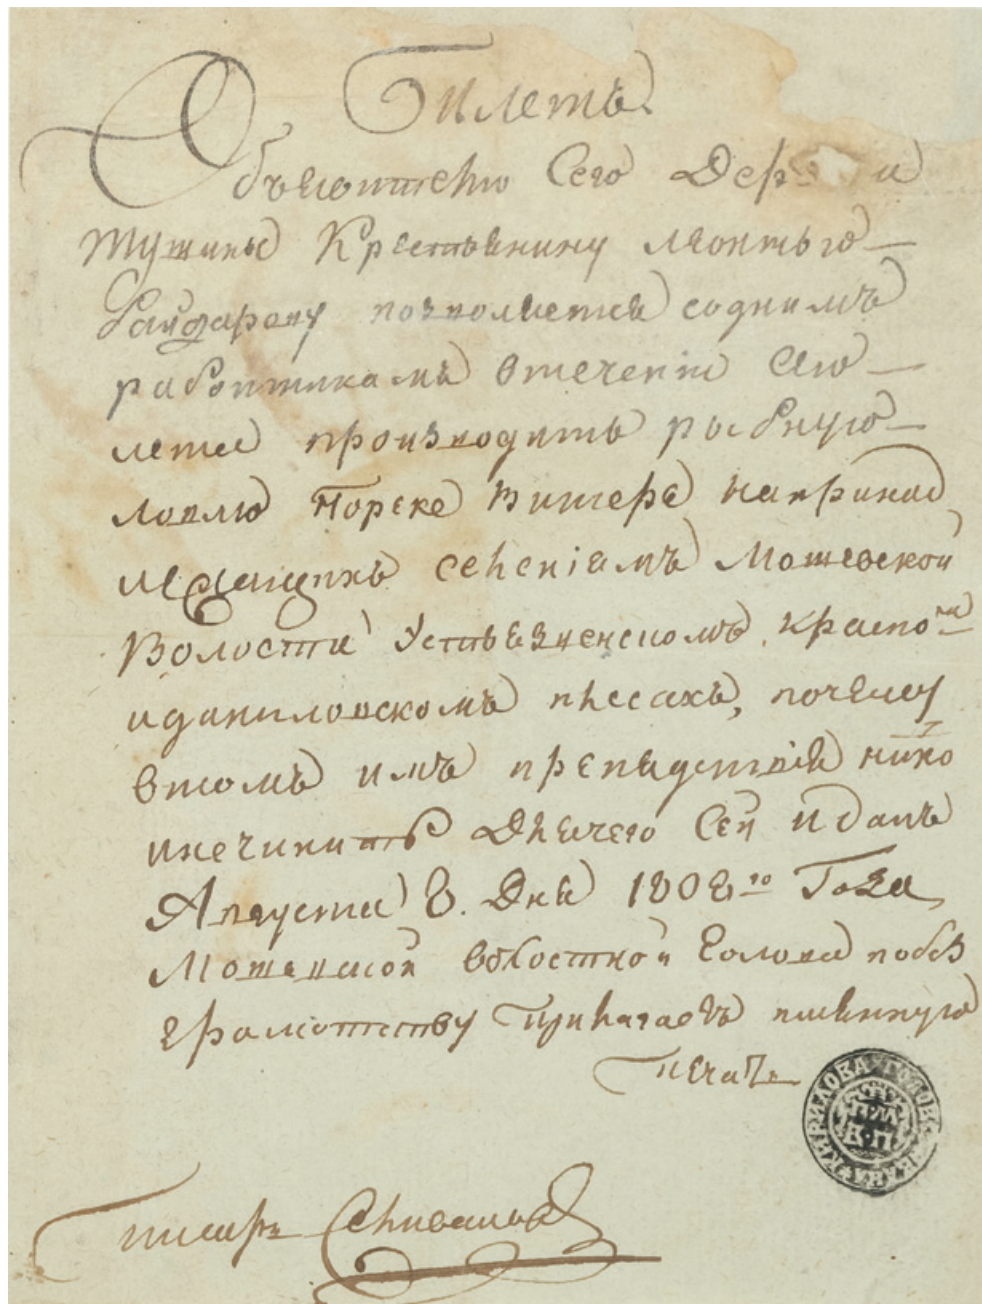 Билетъ
Объявителю Сего Дер и
Тушины Крестьянину Леонтью
позволяется соднимъ
работникамъ втечении Сего
лета производить рыбную
ловлю Пореке напринад
лежащихъ селениямъ Мошевской
Волости
иданиловскомъ плесахъ, почему
втомъ имъ препядствия нико
инечинить Длячего Сей иданъ
Августа 8. Дня 1808го Года
Мошевской волостной Голова побез
грамотству Прилагаетъ имянную
печать
Писарь